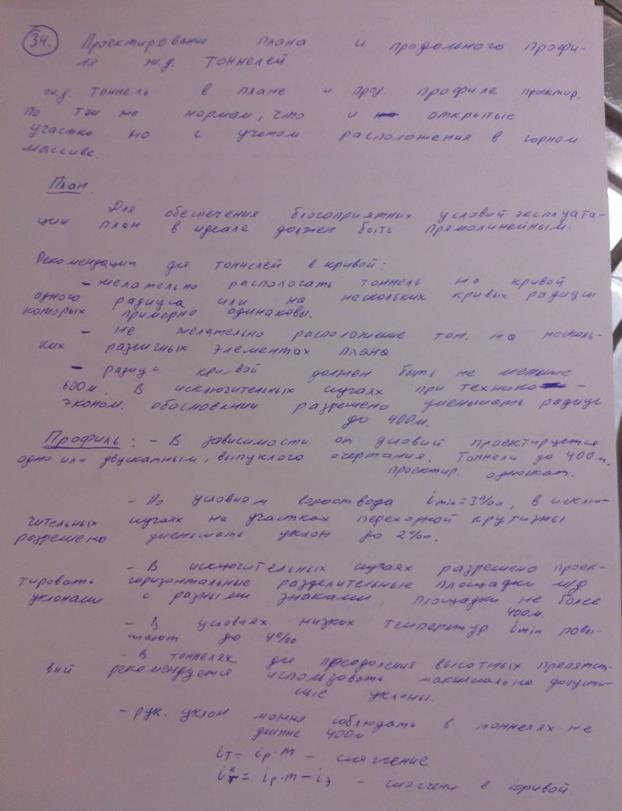 34. Проектирование плана и продольного профи-
ля ж.д. тоннелей
ж.д. тоннель в плане и прод. профиле проектир.
по тем же нормам, что и открытые
участки но с учетом расположения в горном
массиве.
План.
Для обеспечения благоприятных условий эксплуата-
ции план в идеале должен быть прямолинейным.
Рекомендации для тоннелей в кривой:
- желательно распологать тоннель на кривой
одного радиуса или на нескольких кривых радиусы
которых примерно одинаковы.
- не желательно расположение тон. на несколь-
ких различных элементах плана
- радиус кривой должен быть не меньше
600м. В исключительных случаях при технико-
эконом. обосновании разрешено уменьшать радиус
до 400м.
Профиль: - В зависимости от условий проектируется
одно или двускатным, выпуклого очертания. Тоннели до 400м.
проектир. односкат.
- По условиям водоотвода imin=3‰, в исклю-
чительных случаях на участках переходной крутизны
разрешено уменьшать уклон до 2‰.
- В исключительных случаях разрешено проек-
тировать горизонтальные разделительные площадки м/д
уклонами с разными знаками, площадки не более
400м.
- В условиях низких температур imin повы-
шают до 4‰
- В тоннелях для преодоления высотных препятст-
вий рекомендуется использовать максимально допусти-
мые уклоны.
- рук. уклон можно соблюдать в тоннелях не
длинне 400м
iт = iр·m - смягчение
iтк = iр·m - iэ - смягчен в кривой.